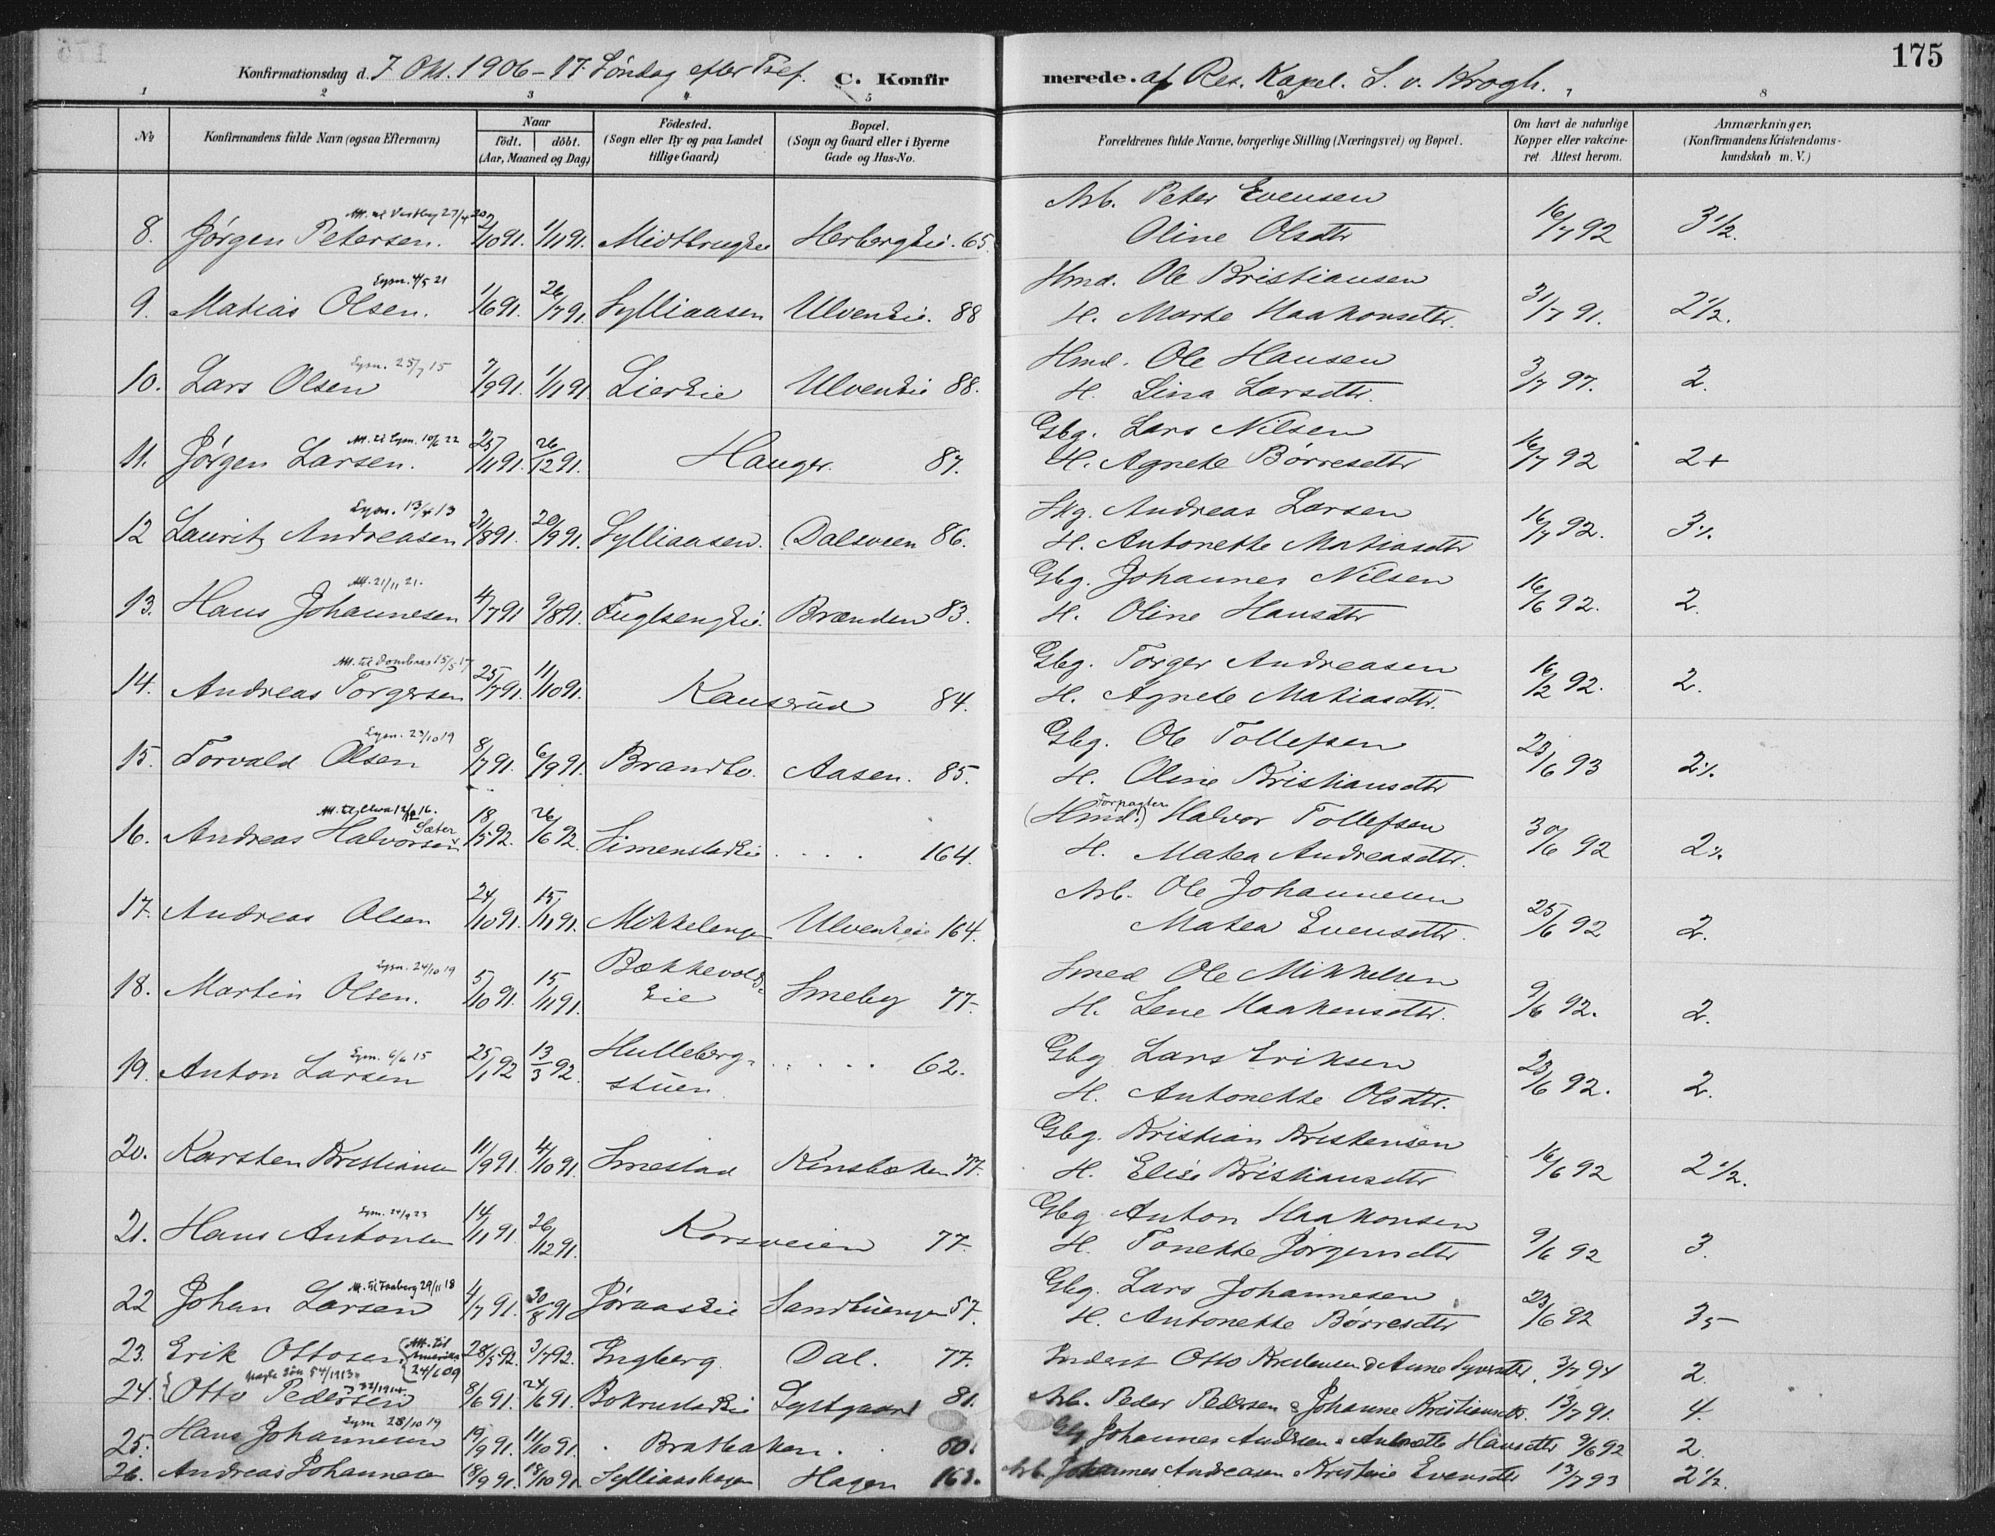 175
Konfirmationsdag d. 7 Okt. 1906 - 17. Søndag efter Tref. C. Konfirmerede. af Res. Kapel. S. v. Krogh.
1 2 3 4 5 8
№ Konfirmandens fulde Navn (ogsaa Efternavn) Naar født. døbt. (Aar, Maaned og Dag) Födested. (Sogn eller By og paa Landet tillige Gaard) Bopæl. (Sogn og Gaard eller i Byerne Gade og Hus-No. Forældrenes fulde Navne, borgerlige Stilling (Næringsvei) og Bopæl. Om havt de naturlige Kopper eller vakcineret. Attest herom. Anmærkninger, (Konfirmandens Kristendomskundskab m. V.)
Att. til Vestby 27/4 20
8. Jørgen Petersen. 2/10 91. 1/11 91. Midtbrugeie Herbergeie. 65. Arb. Peter Evensen
Oline Olsdtr 16/7 92 3 1/2.
Lysn. 4/5 21
9. Matias Olsen. 1/6 91. 26/7 91. Sylliaasen Ulveneie. 88 Hmd. Ole Kristiansen
H. Marte Haakonsdtr. 31/7 91. 2 1/2.
Lysn. 25/7 15
10. Lars Olsen 7/9 91. 1/11 91 Liereie Ulveneie 88. Hmd. Ole Hansen
H. Lina Larsdtr. 3/7 97. 2.
Att. til Lysn. 10/6 22
11. Jørgen Larsen. 25/11 91. 26/12 91. Hauger. 87. Gbg. Lars Nilsen
H. Agnete Børresdtr 16/7 92 2+
Lysn. 13/4 13
12 Laurits Andreasen 31/8 91. 20/9 91. Sylliaasen. Dalsveen 86. Skg. Andreas Larsen
H. Antonette Matiasdtr 16/7 92. 3 ⁒
Att. 21/11 21.
13. Hans Johannesen 4/7 91 9/8 91. Fuglsengeie. Brænden 83. Gbg. Johannes Nilsen
H. Oline Hansdtr 16/6 92. 2.
Att. til Dombaas 15/5 17
14. Andreas Torgersen 25/7 91. 11/10 91. Kauserud 84. Gbg. Torger Andreasen
H. Agnete Matiasdtr. 16/2 92. 2.
Lysn. 23/10 19
15. Torvald Olsen 8/7 91. 6/9 91. Brandbo. Aasen. 85. Gbg. Ole Tollefsen
H. Oline Kristiansdtr 23/6 93 2 ⁒
16. Andreas Halvorsen Sæter 18/5 92. 26/6 92. Simenstadeie . . . . 164. (Hmd.) Forpagter Halvor Tollefsen
H. Matea Andreasdtr. 30/6 92 2 ⁒
17. Andreas Olsen 24/10 91. 15/11 91. Mikkelengen Ulveneie 164. Arb. Ole Johannesen
Matea Evensdtr. 25/6 92 2.
Lysn. 24/10 19
18. Martin Olsen. 5/10 91. 15/11 91. Bækkevoldeie Smeby 77. Smed Ole Mikkelsen
H. Lene Haakensdtr. 9/6 92. 2.
Lysn. 6/6 15
19. Anton Larsen 25/1 92 13/3 92. Hullebergstuen . . . . . 62. Gbg Lars Eriksen
H. Antonette Olsdtr. 23/6 92. 2.
20. Karsten Kristiansen 11/9 91. 4/10 91. Smestad Kinsbæken 77. Gbg. Kristian Kristensen
H. Elise Kristiansdtr 16/6 92 2 1/2.
Lysn. 24/9 23
21. Hans Antonsen 14/11 91. 26/12 91. Korsveien 77. Gbg Anton Haakonsen
H. Tonette Jørgensdtr 9/6 92 3.
Att. til Faaberg 29/11 18
22 Johan Larsen 4/7 91. 30/8 91 Jøraaseie Sandtuengen 57. Gbg. Lars Johannesen
H. Antonette Børresdtr 23/6 92 3 5
23. Erik Ottosen. Att. til Amerika 24/6 09 28/5 92. 3/7 92. Engberg. Dal. 77. Inderst Otto Kristensen & Anne Syversdtr. 3/7 94 2.
24. Otto Pedersen 8/6 91. 24/6 91. Bokrudeie Lystgaard 81. Arb. Peder Pedersen & Johanne Kristiansdtr. 13/7 91. 4.
Lysn 28/10 19
25. Hans Johannesen 19/9 91. 11/10 91. . Bratbakken . . 60. Gbg Johannes Andersen & Antonette Hansdtr 9/6 92 2.
26. Andreas Johannesen 18/9 91. 18/10 91. Sylliaashagen Hagen 163. Arb. Johannes Andreasen & Kristine Evensdtr 13/7 93 2 1/2.